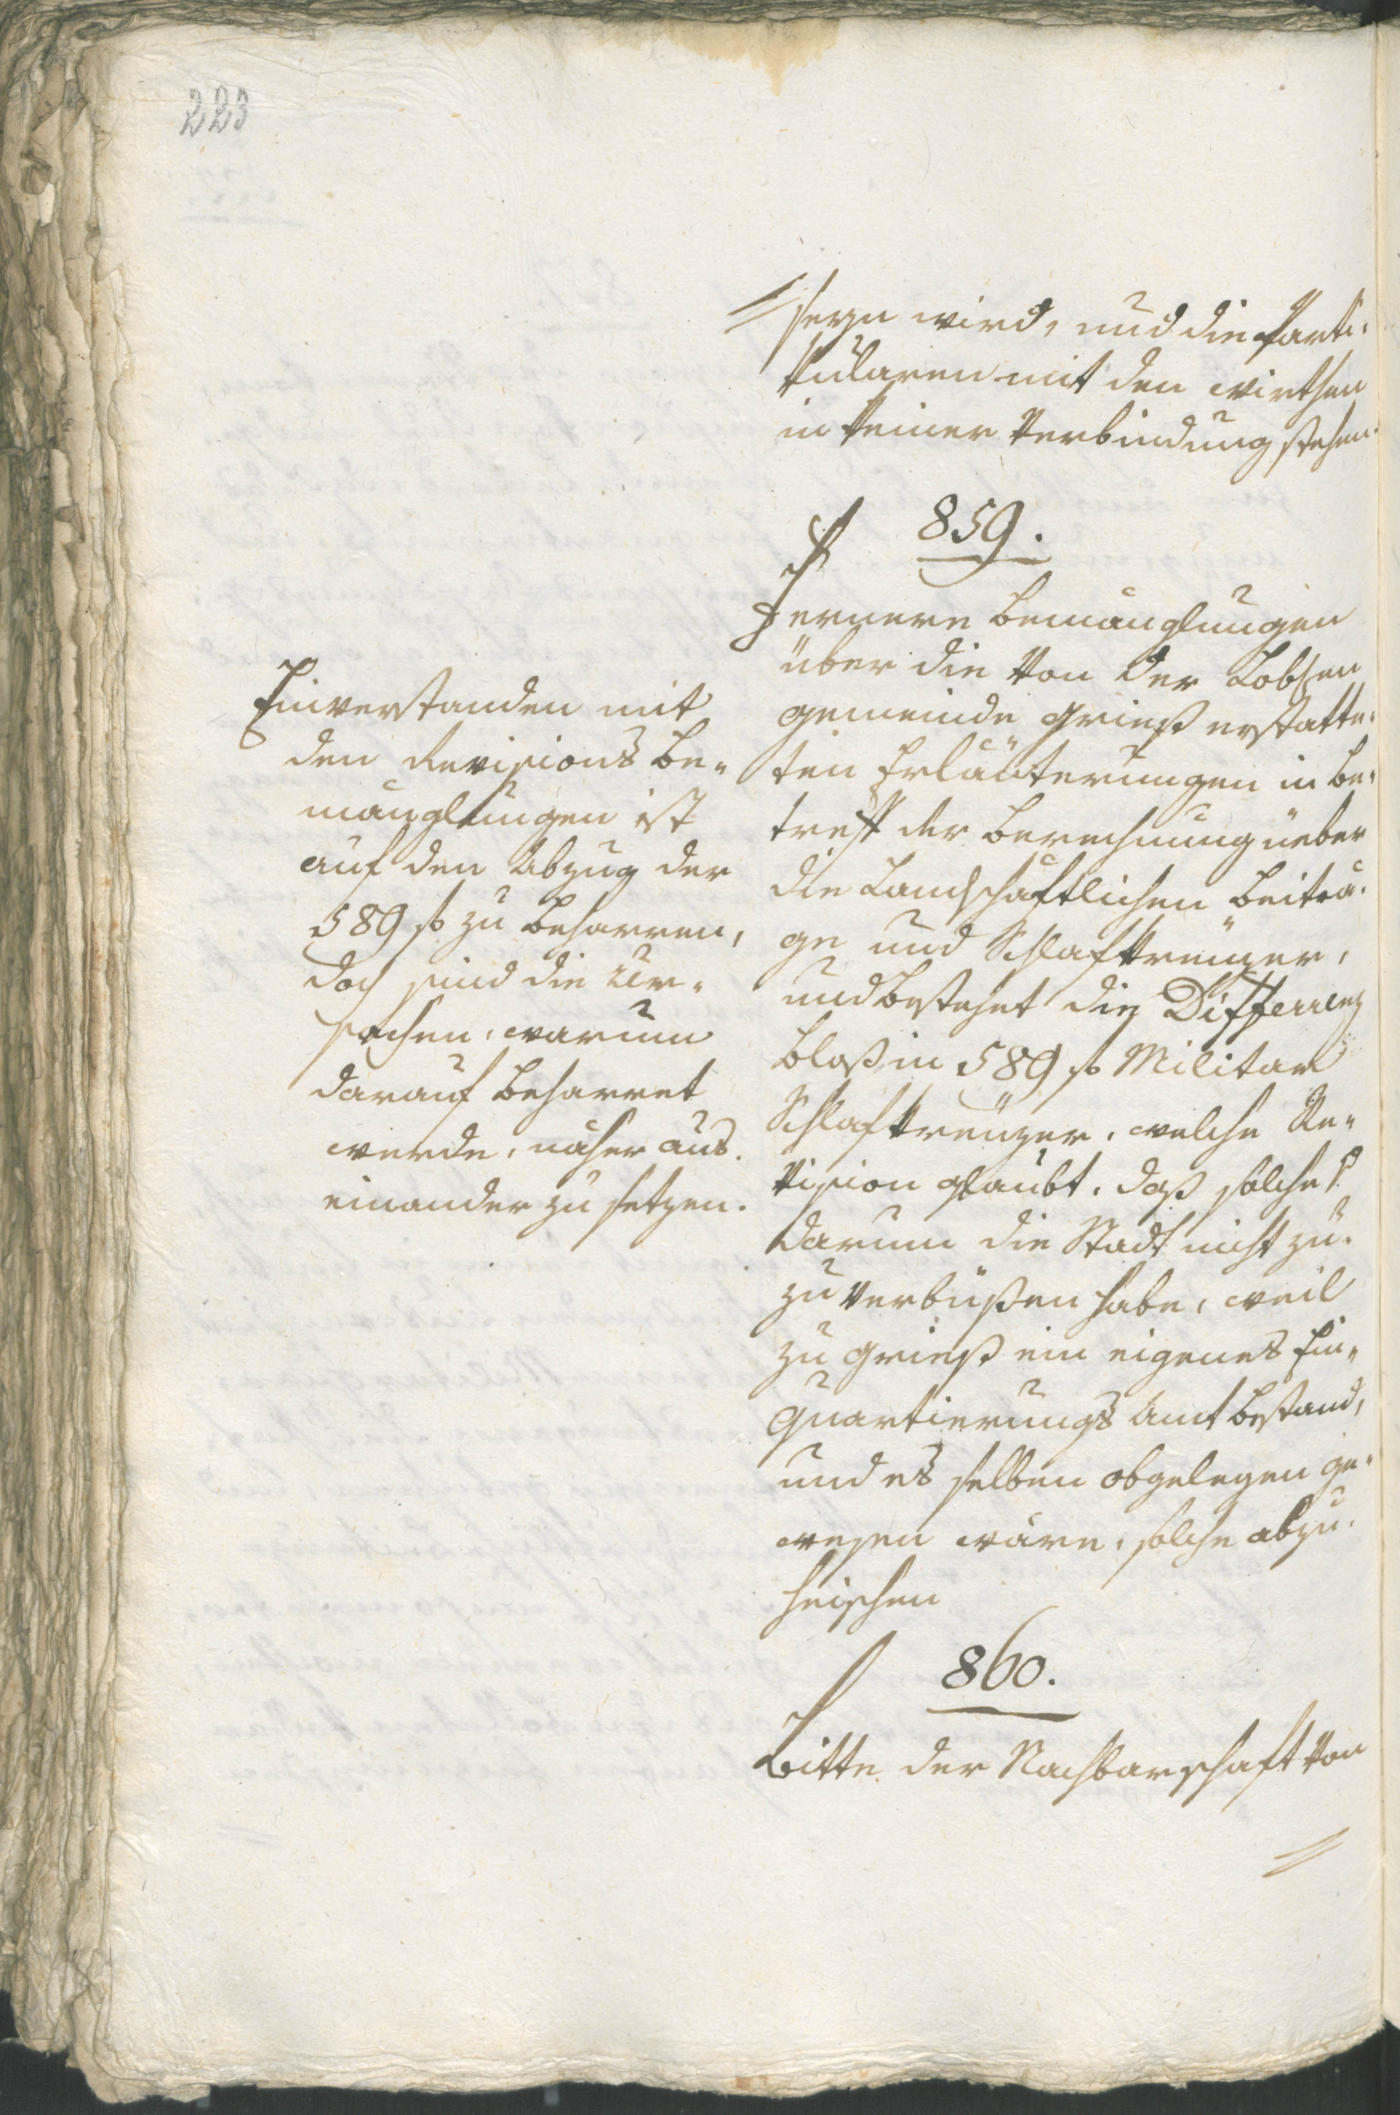 223
seyn wird, und die Parti¬
kularen mit den Wirthen
in keiner Verbindung stehen.
859.
Fernere Bemänglungen
über die von der Lobsen
gemeinde Grieß erstatte¬
ten Erläuterungen in be¬
treff der Berechnung üeber
die Landschaftlichen Beiträ¬
ge und Schlafkreuzer,
und bestehet die Differrenz
bloß in 589 f Militar
Schlafkreuzer, welche Re¬
vision glaubt, daß solche
darum die Stadt nicht zu¬
zu verbüßen habe, weil
zu Grieß ein eigenes Ein¬
quartierungs Amt bestand,
und es selben obgelegen ge¬
wesen wäre, solche abzu¬
heischen
Einverstanden mit
den Revisions Be¬
mänglungen ist
auf den Abzug der
589 f zu beharren,
doch sind die Ur¬
sachen, warum
darauf beharret
werde, näher aus¬
einander zu setzen.
860.
Bitte der Nachbarschaft von